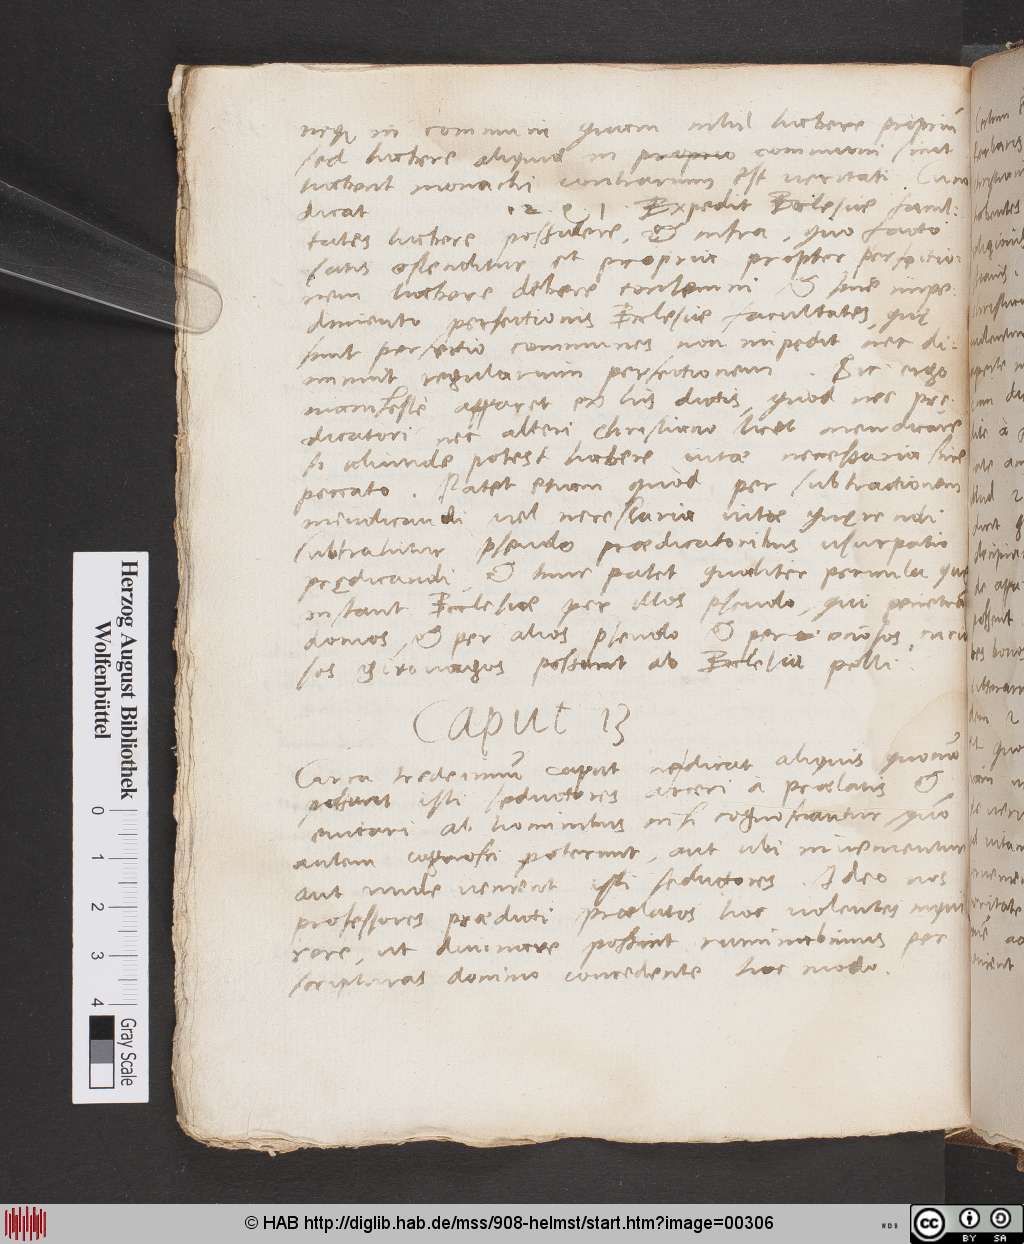 neq₃ in communi quam nihil habere propriū
sed habere aliquid in proprio communi sicut
habent monachi contrarium est veritati Cum
dicat 12 q 1 Expedit Ecclesiæ facul-
tates habere possidere, & infra, quo facto
satis ostenditur et propria propter perfectio-
nem habere debere contemni & sine impe-
dimento perfectionis Ecclesiæ facultates, quę
sunt perfectio communes non impedit nec di-
minuit regularium perfectionem. Sic ergo
manifestè apparet ex his dictis, quod nec prę-
dicatori nec alteri christiano licet mendicare
si aliunde potest habere vitæ necessaria sine
peccato. Patet etiam quòd per subtractionem
mendicandi vel necessaria vitæ quęrendi
subtrahitur pseudo prædicatoribus usurpatio
prędicandi & hinc patet qualiter pericula que
instant Ecclesiæ per illos pseudo, qui penetrāt
domos, & per alios pseudo & per ociosos curio
sos girovagos possunt ab Ecclesia pelli.
Caput 13
Circa tredecimum caput ne dicat aliquis quomō
possunt isti seductores arceri à prælatis &
evitari ab hominibus nisi cognoscantur, quō
autem cognosci poterunt, aut ubi invenientur
aut unde venient isti seductores. Ideo nos
professores prædicti prælatos hoc volentes inqui
rere, ut divinare possint ruminabimus per
scripturas domino concedente hoc modo.
Herzog August Bibliothek
Wolfenbüttel
0 1 2 3 4
Gray Scale
© HAB http://diglib.hab.de/mss/908-helmst/start.htm?image=00306
WDB
CC BY SA